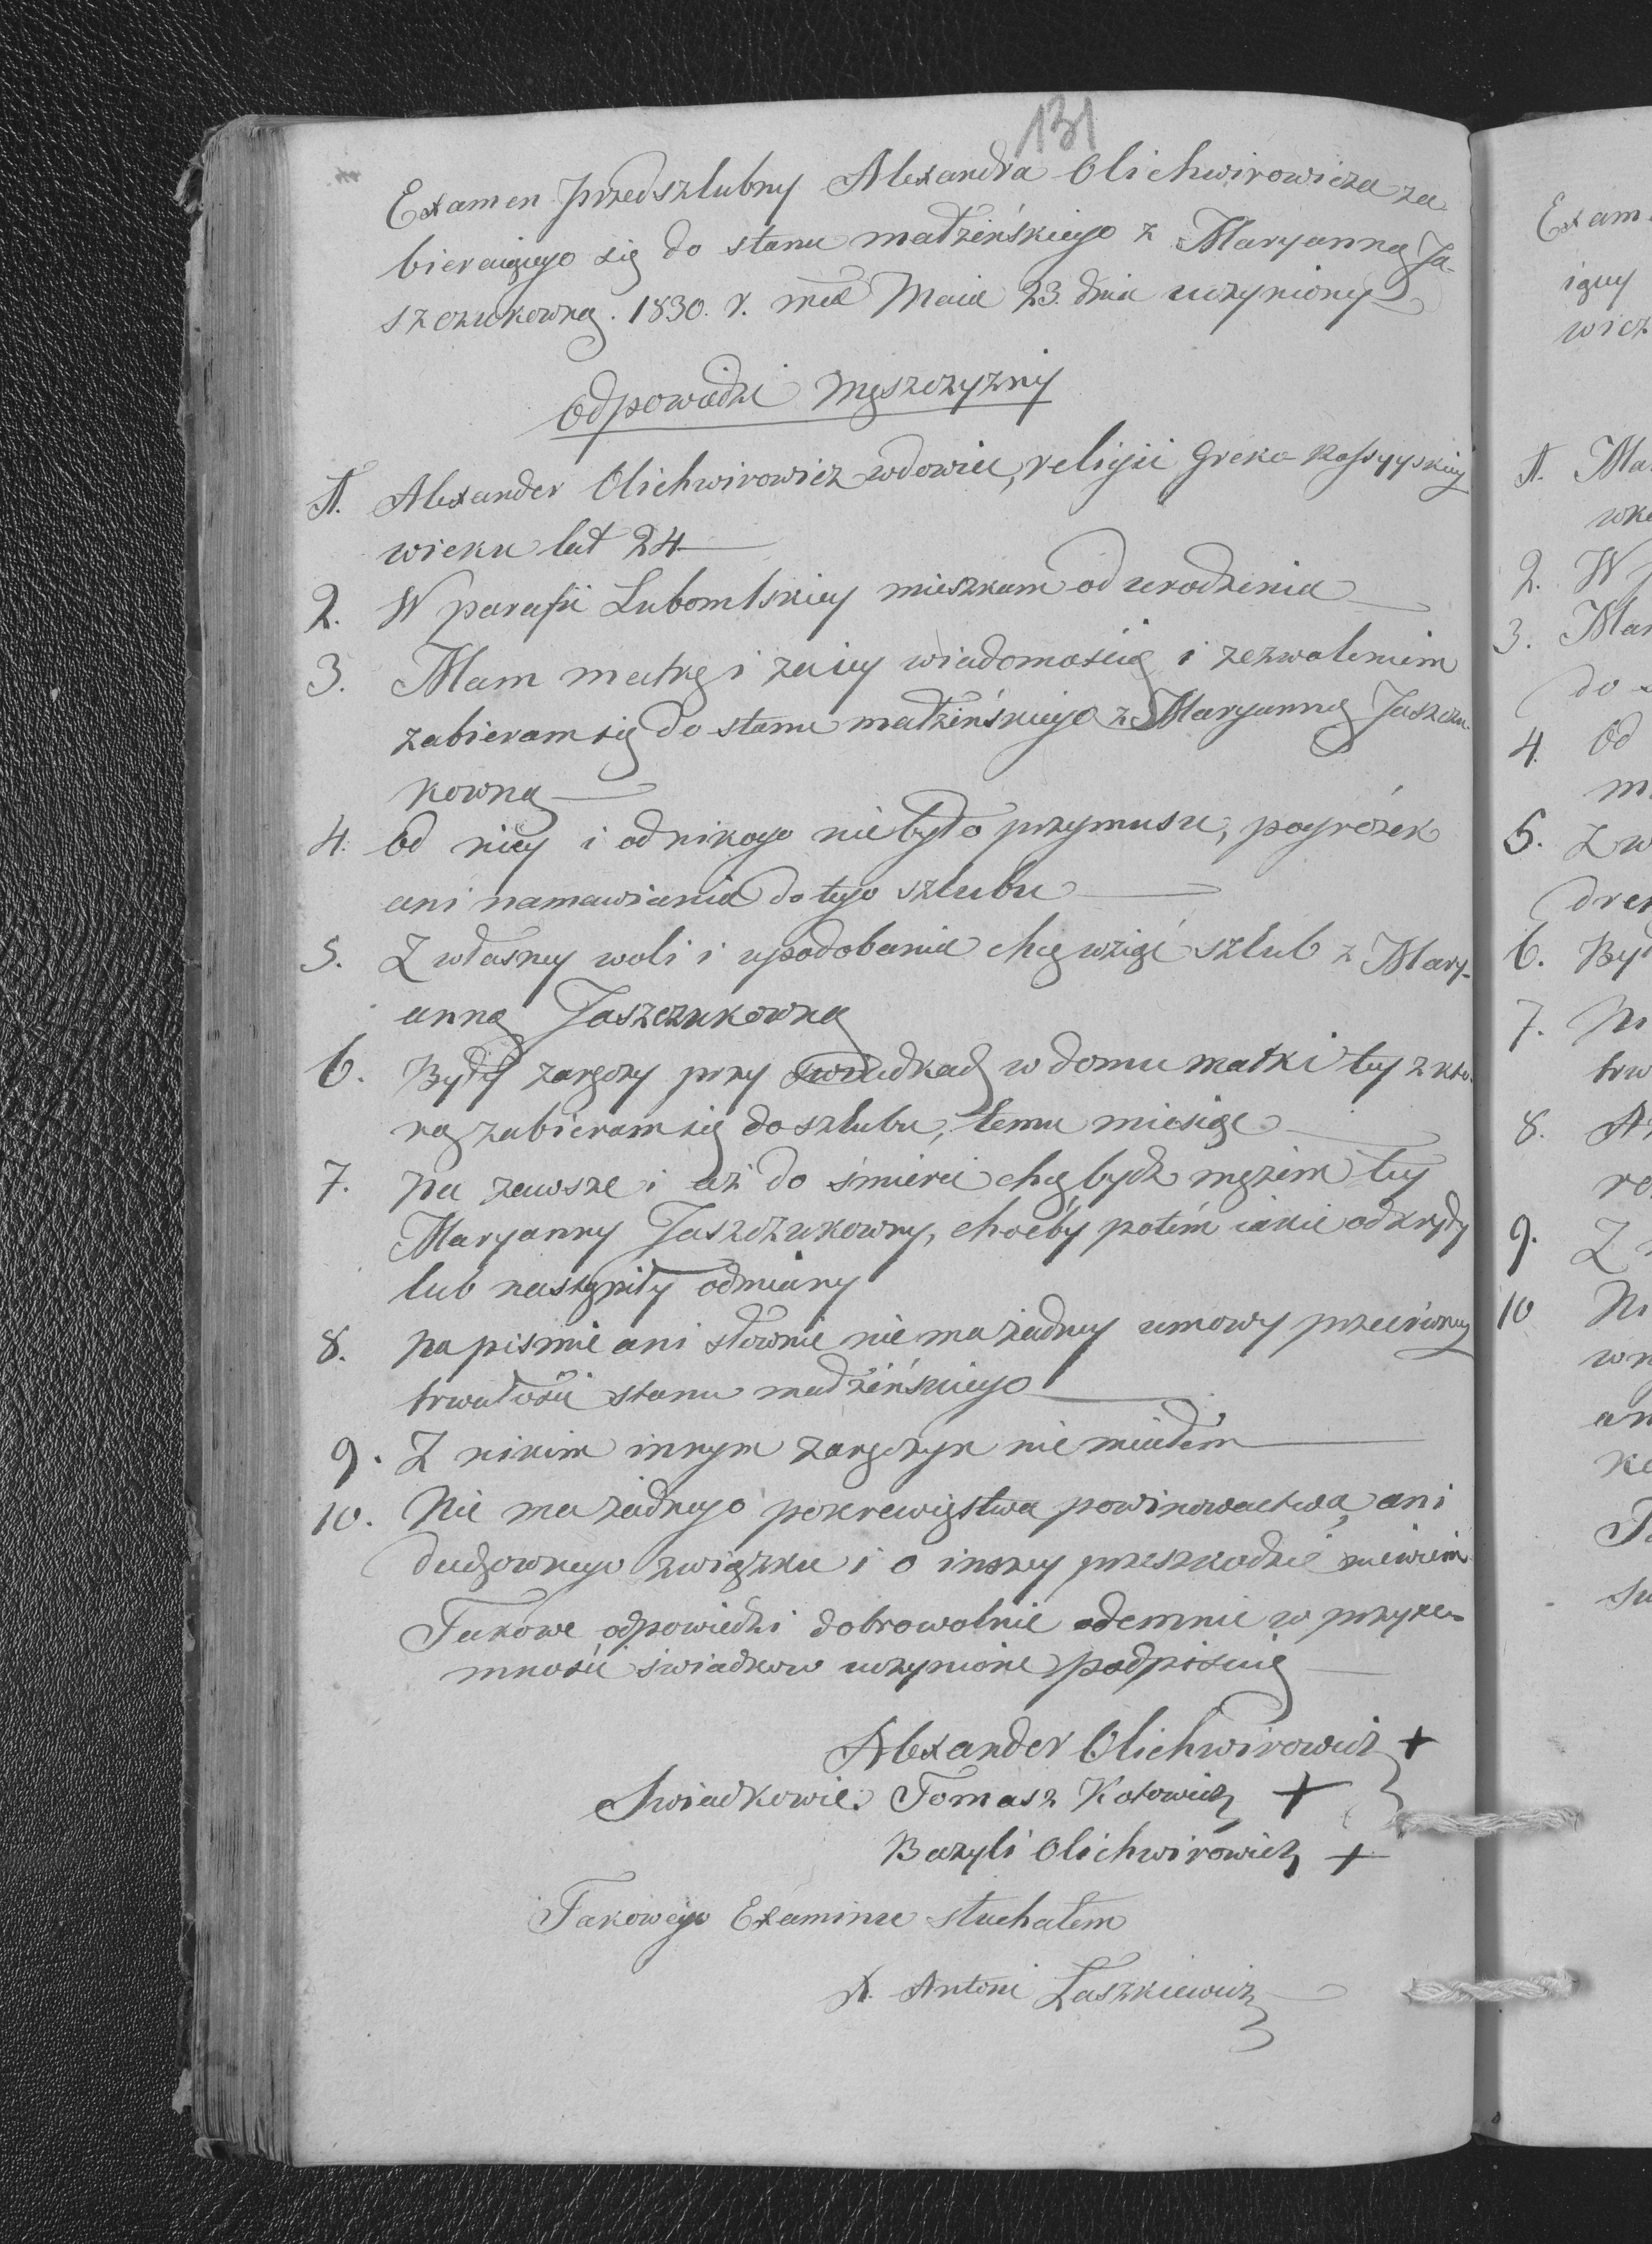 131
Examen przedszlubny Alexandra Olichwirowicza za
bieraiącego się do stanu małżeńskiego z Maryanną Ja-
szczukowną. 1830. r. mca Maia 23. dnia uczyniony
Odpowiedzi Męszczyzny
1. Alexander Olichwirowicz wdowiec, religii Greko-Rossyyskiey
wieku lat 24
2. W parafii Lubomlskiey mieszkam od urodzenia
3. Mam matkę i za iey wiadomością i zezwoleniem
zabieram się do stanu małżeńskiego z Maryanną Jaszczu-
kowną
4. Od niey i od nikogo nie było przymusu, pogróżek
ani namawiania do tego szlubu
5. Z własney woli i upodobania chcę wziąć szlub z Mary-
anną Jaszczukowną
6. Były zaręczy przy swiadkach w domu matki tey z któ-
rą zabieram się do szlubu, temu miesiąc
7. Na zawsze i aż do śmierci chcę bydź mężem tey
Maryanny Jaszczukowny, choćby potém iakie odkryły
lub nastąpiły odmiany
8. Na pismie ani słownie nie ma żadney umowy przeciwney
trwałości stanu małżeńskiego
9. Z nikim innym zaręczyn nie miałem
10. Nie ma żadnego pokrewięstwa powinowactwa, ani
duchownego związku i o inszey przeszkodzie niewiem
Takowe odpowiedzi dobrowolnie odemnie w przyto-
mności swiadkow uczynione podpisuię
Alexander Olichwirowicz +
Swiadkowie: Tomasz Kotowicz +
Bazyli Olichwirowicz +
Takowego Examinu słuchałem
X. Antoni Laszkiewicz
Exam
iącey
wicz
1. Ma
wko
2. W p
3. Mam
do s
4. Od
m
5. Z w
drem
6. Był
7. Na
trw
8.
ro
9. Z
10 Ni
wn
an
Ta